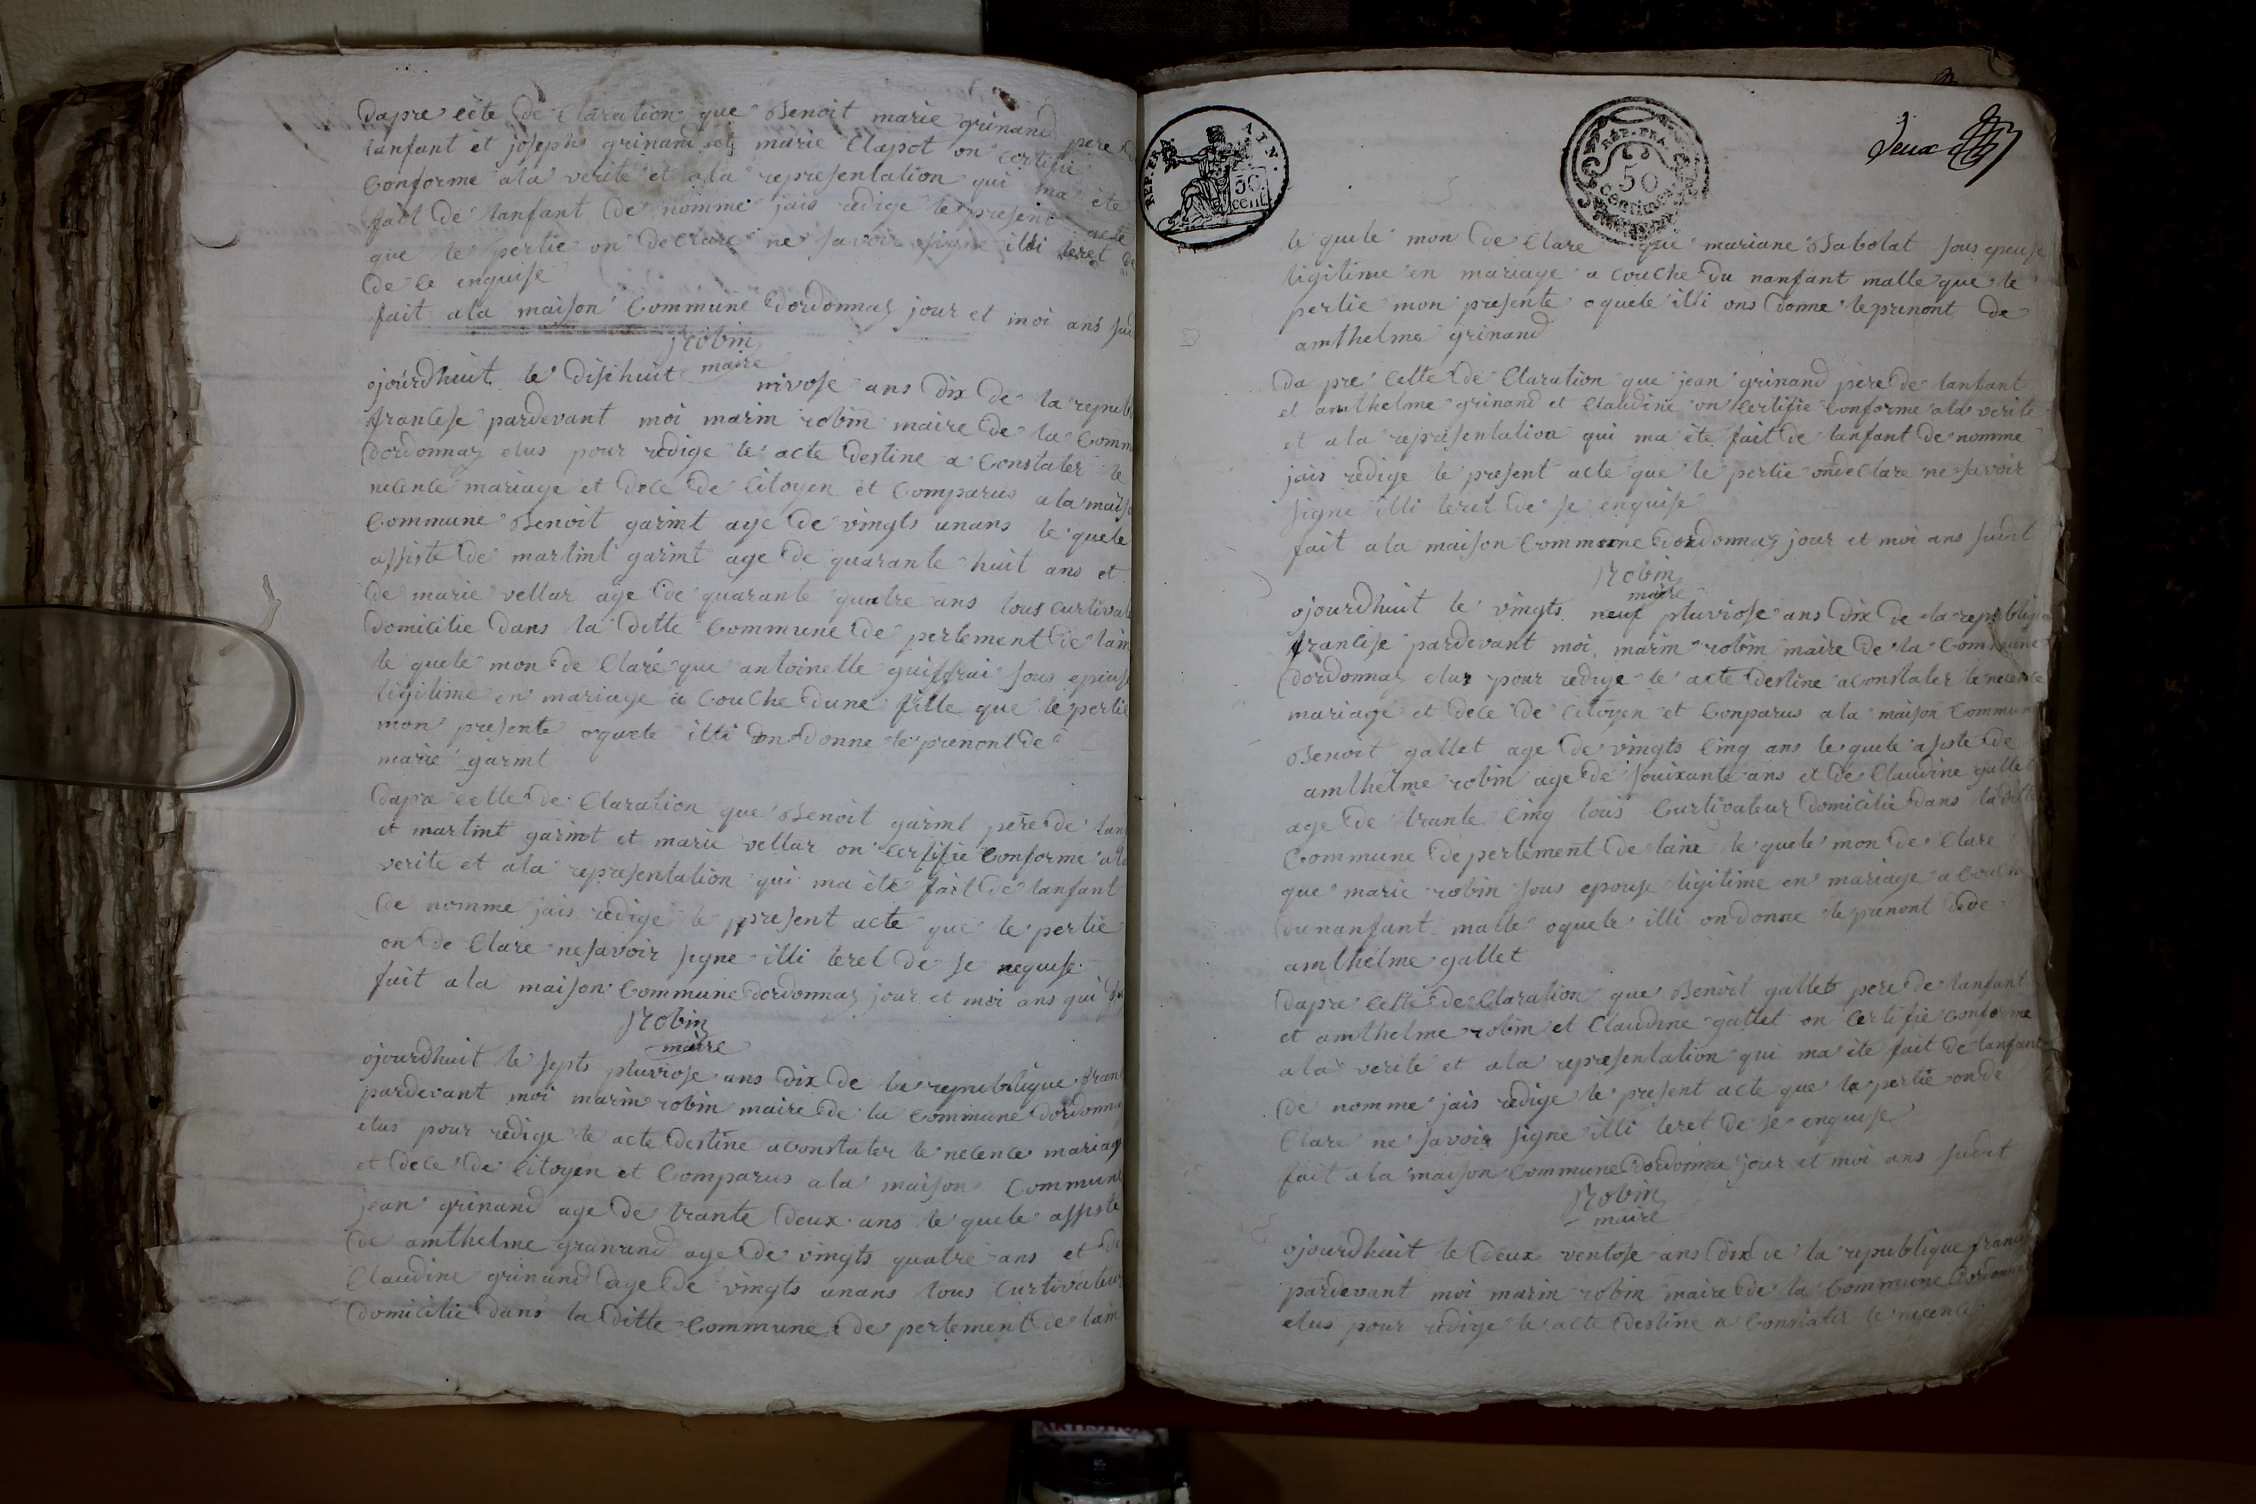 dapre cète de Claration que Benoit marie grinand pere de
lanfant et joseph grinand et marie Clapot on Certifie
Conforme ala verite et ala representation qui ma ète
fait de lanfant de nomme jais redige le present acte
que le pertie on declare ne savoir signe illi teret de
de ce enquise
fait ala maison Commune dordonnaz jour et moi ans
Robin
maire
ojourdhuit le disihuit nivose ans dix de la republ
francese pardevant moi marin robin maire de la Comm
dordonnaz elus pour redige le acte destine a Constater le
necence mariage et dece de Citoyen et Comparus ala mais
Commune Benoit garint age de vingts unans le quele
assiste de martint garint age de quarante huit ans et
de marie vettar age de quarante quatre ans tous curtivat
domicilie dans la ditte Commune de pertement de lain
le quele mon de Claré que antoinette guiffrai sous epouse
ligitime en mariage a Couche dune fille que le pertie
mon presente oquele illi on donne le prenont de
marie garint
dapre cette de Claration que Benoit garint père de lan
et martint garint et marie vettar on Certifie Conforme ala
verite et ala representation qui ma ète fait de lanfant
de nomme jais redige le present acte que le pertie
on de Clare ne savoir signe illi teret de se nequise
fait ala maison Commune dordonnaz jour et moi ans qui
Robin
maire
ojourdhuit le septs pluviose ans dix de la republique fran
pardevant moi marin robin maire de la Commune dordonna
elus pour redige le acte destine aconstater le necence mariage
et dece de Citoyen et Comparus ala maison Commune
jean grinand age de trante deux ans le quele assiste
de amthelme grinand age de vingts quatre ans et de
Claudine grinand age de vingts unans tous Curtivateur
domicilie dans la ditte Commune de pertement de lain
REP. FRA
50
cent.
REP. FRA.
50
Centimes
deux
le quele mon de Clare que mariane Babolat sous epeuse
ligitime en mariage a Couche du nanfant malle que le
pertie mon presente oquele illi ons donne le prenont de
amthelme grinand
da pre cette de Claration que jean grinand père de lanfant
et amthelme grinand et Claudine on Certifie Conforme ala verite
et ala representation qui ma ète fait de lanfant de nomme
jais redige le present acte que le pertie ondeclare ne savoir
signe illi teret de se enquise
fait ala maison Commune dordonnaz jour et moi ans sudit
Robin
maire
ojourdhuit le vingts neuf pluviose ans dix de la republique
francise pardevant moi marin robin maire de la Commune
dordonnaz elus pour redige le acte destine aconstater le necence
mariage et dece de Citoyen et Conparus ala maison Commun
Benoit gallet age de vingts Cinq ans le quele asiste de
amthelme robin age de souixante ans et de Claudine galle
age de trante Cinq tous Curtivateur domicilie dans la ditte
Commune de pertement de laine le quele mon de Clare
que marie robin sous epouse ligitime en mariage a Couche
du nanfant malle oquele illi on donne le prenont de
amthelme gallet
dapre cette de Claration que Benoit gallet pere de lanfant
et amthelme robin et Claudine gallet on Certifie Conforme
ala verite et ala representation qui ma ète fait de lanfant
de nomme jais redige le present acte que le pertie on de
Clare ne savoir signe illi teret de se enquise
fait ala maison Commune dordonna jour et moi ans sudit
Robin
maire
ojourdhuit le deux ventose ans dix de la republique franc
pardevant moi marin robin maire de la Commune dordonna
elus pour redige le acte destine a Constater le necence